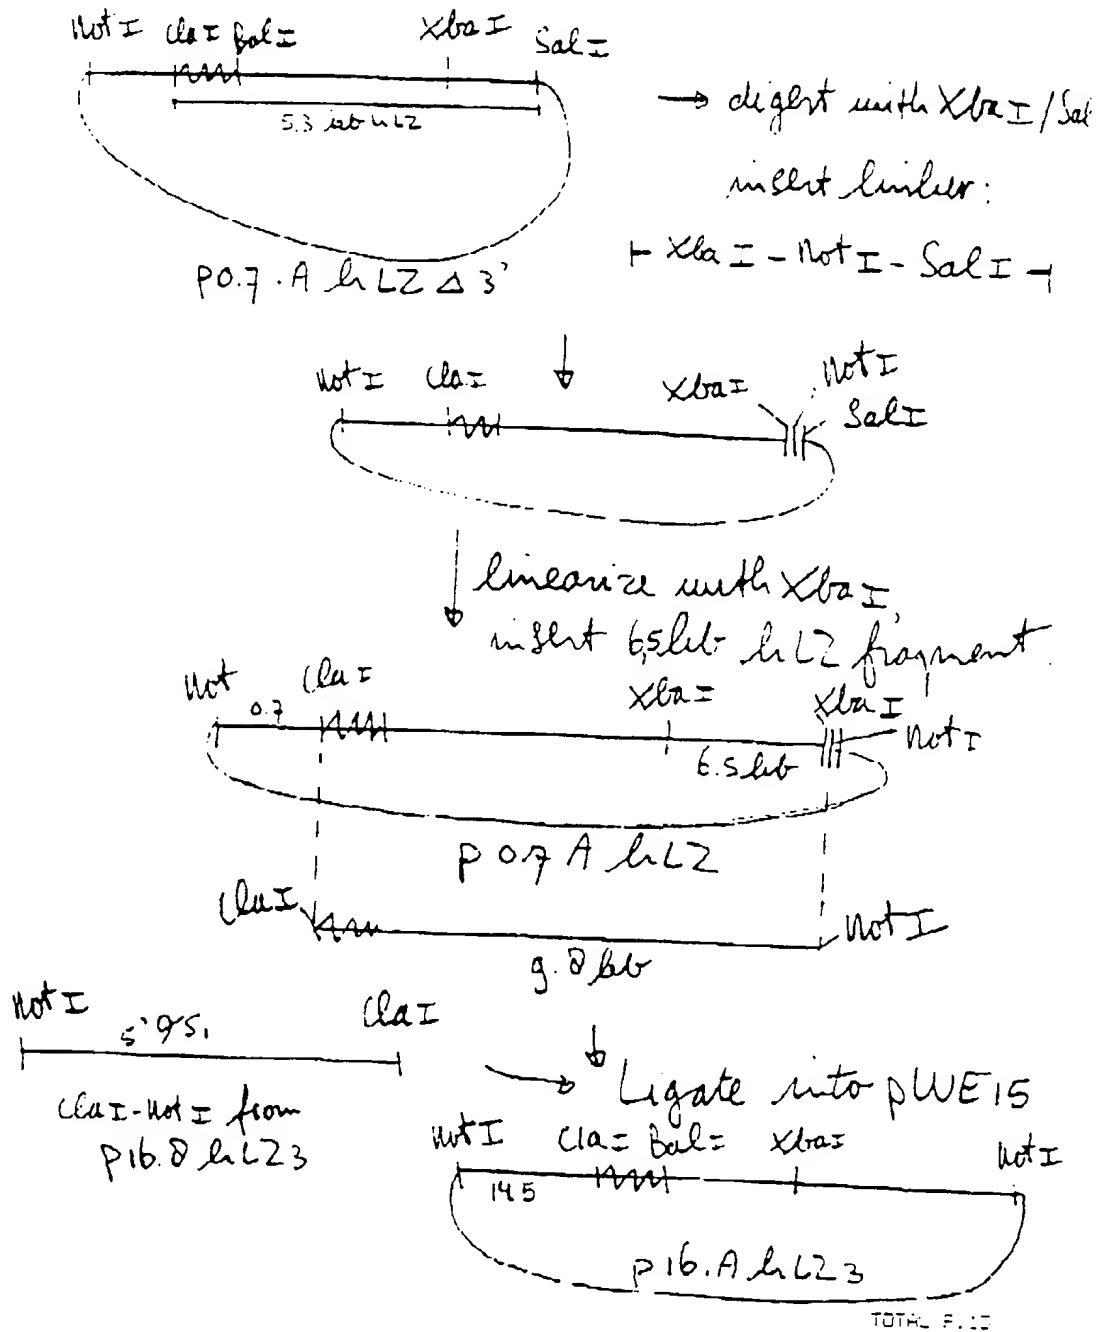 Not I ClaI BalI XbaI SalI
5.3 kb hLZ
→ digest with XbaI/Sal
insert linker:
⊢ XbaI - NotI - SalI ⊣
p0.7.A hLZ Δ3'
↓
NotI ClaI XbaI NotI
SalI
↓ linearize with XbaI,
insert 6,5kb hLZ fragment.
Not ClaI XbaI XbaI
0.7 6.5 kb NotI
p 0.7 A hLZ
ClaI NotI
9.8 kb
NotI ClaI
5'
ClaI-NotI from
p16.8 hLZ3
↓
→ Ligate into pWE15
NotI ClaI BalI XbaI NotI
14.5
p16.A hLZ3